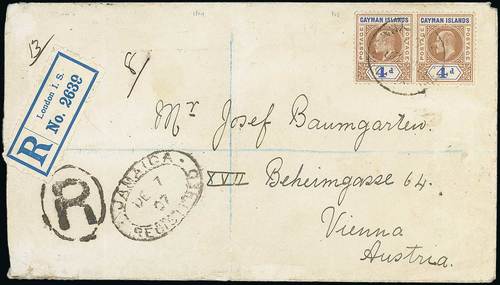 CAYMAN ISLANDS CAYMAN ISLANDS
POSTAGE POSTAGE POSTAGE POSTAGE
4d 4d
13/
8/
R London I. S.
No. 2639
Mr Josef Baumgarten.
XVII Beheimgasse 64.
Vienna
Austria.
R
JAMAICA
DE 7
07
REGISTERED